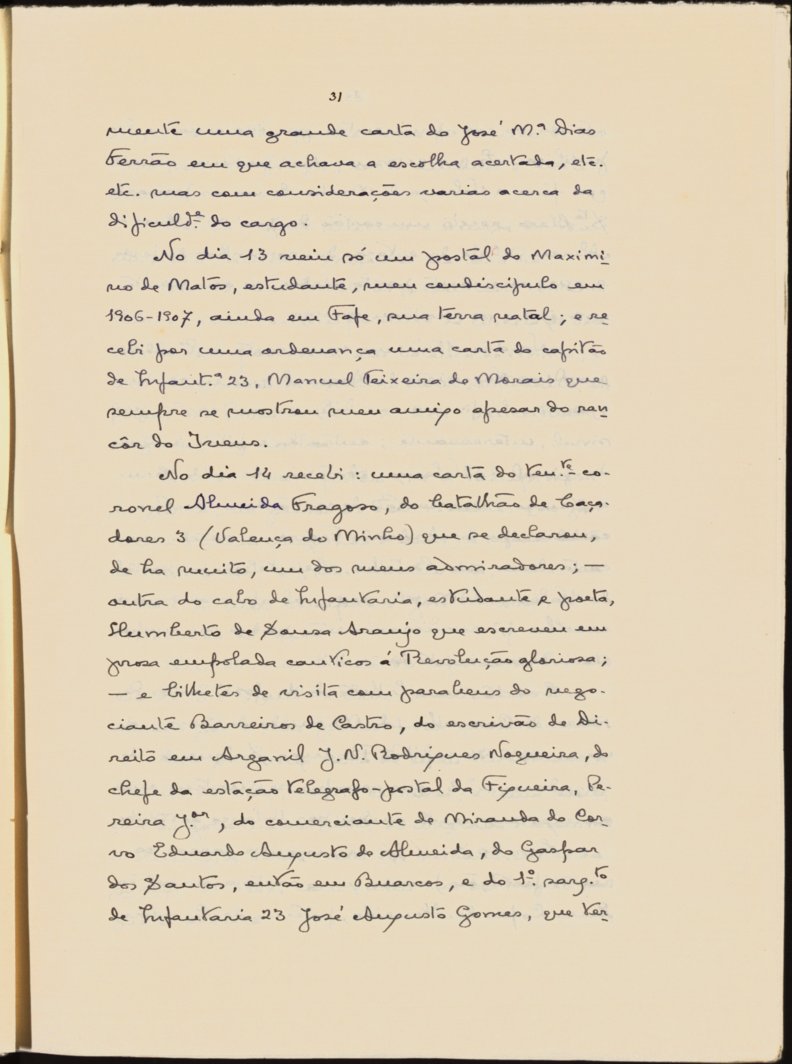 31
mente uma grande carta do José M.ª Dias
Ferrão em que achava a escolha acertada, etc.
etc. mas com considerações varias acerca da
dificuld.e do cargo.
No dia 13 veiu só um postal do Maximi-
no de Matos, estudante, meu condiscipulo em
1906-1907, ainda em Fafe, sua terra natal; e re-
cebi por uma ordenança uma carta do capitão
de Infant.ª 23, Manuel Teixeira de Morais que
sempre se mostrou meu amigo apesar do ran-
côr do Ireus.
No dia 14 recebi: uma carta do ten.te co-
ronel Almeida Fragoso, do batalhão de Caça-
dores 3 (Valença do Minho) que se declarou,
de ha muito, um dos meus admiradores; —
outra do cabo de Infantaria, estudante e poeta,
Humberto de Sousa Araujo que escreveu em
prosa empolada canticos á Revolução gloriosa;
— e bilhetes de visita com parabens do nego-
ciante Barreiros de Castro, do escrivão de Di-
reito em Arganil J. N. Rodrigues Nogueira, do
chefe da estação telegrafo-postal da Figueira, Pe-
reira J.or, do comerciante de Miranda do Cor-
vo Eduardo Augusto de Almeida, do Gaspar
dos Santos, então em Buarcos, e do 1.º sarg.to
de Infantaria 23 José Augusto Gomes, que ter-